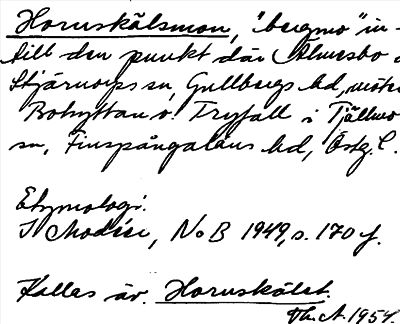 Hornskålsmon, "bergmo" in-
till den punkt där Almesbo
Stjärnorps sn, Gullbergs hd, möter
Bohyttan o. Tryfall i Tjällmo
sn, Finspångaläns hd, Östg. l.
Etymologi.
I Modéer, NoB 1949, s. 170 f.
Kallas äv. Hornskålet.
Th. A. 1954.